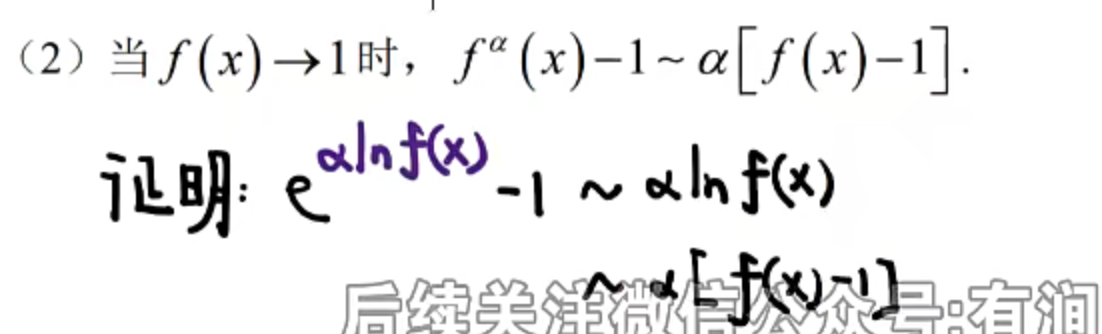 （2）当 f(x)→1时，f^α(x)−1~α[f(x)−1].
证明: e^{αln f(x)} -1 ~ αln f(x)
~ α[f(x)-1]
后续关注微信公众号:有润